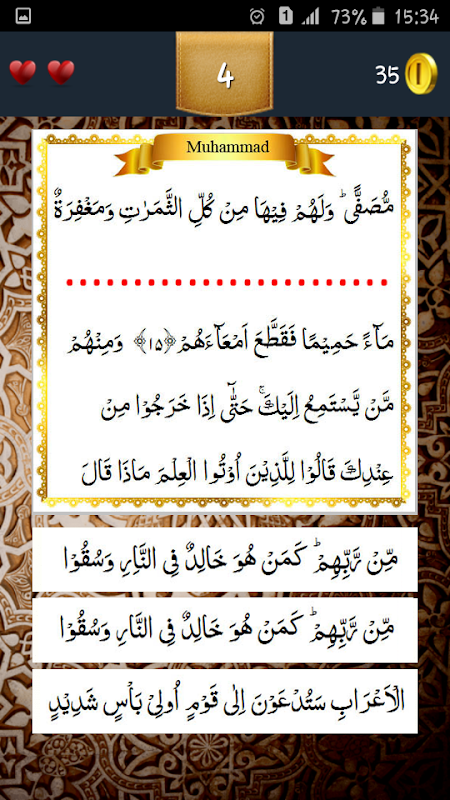 73% 15:34
1
4
35
Muhammad
مُّصَفًّىؕ وَلَهُمْ فِيْهَا مِنْ كُلِّ الثَّمَرٰتِ وَمَغْفِرَةٌ
مَآءً حَمِيْمًا فَقَطَّعَ اَمْعَآءَهُمْ﴿۱۵﴾ وَمِنْهُمْ
مَّنْ يَّسْتَمِعُ اِلَيْكَۚ حَتّٰٓى اِذَا خَرَجُوْا مِنْ
عِنْدِكَ قَالُوْا لِلَّذِيْنَ اُوْتُوا الْعِلْمَ مَاذَا قَالَ
مِّنْ رَّبِّهِمْؕ كَمَنْ هُوَ خَالِدٌ فِى النَّارِ وَسُقُوْا
مِّنْ رَّبِّهِمْؕ كَمَنْ هُوَ خَالِدٌ فِى النَّارِ وَسُقُوْا
الْاَعْرَابِ سَتُدْعَوْنَ اِلٰى قَوْمٍ اُولِىْ بَاْسٍ شَدِيْدٍ